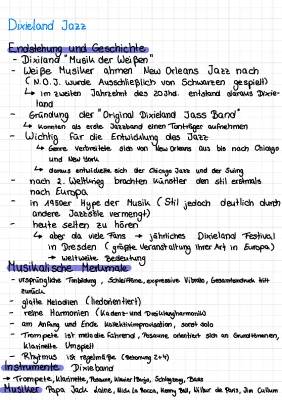 Dixieland Jazz
Endstehung und Geschichte
- Dixiland "Musik der Weißen"
- Weiße Musiker ahmen New Orleans Jazz nach
(N.O.J. wurde Ausschließlich von Schwarzen gespielt)
↳ im zweiten Jahrzehnt des 20Jhd. entstand daraus Dixie-
land
- Gründung der "Original Dixieland Jass Band"
↳ konnten als erste Jazzband einen Tonträger aufnehmen
- Wichtig für die Entwicklung des Jazz
↳ Genre verbreitete sich von New Orleans aus bis nach Chicago
und New York
↳ daraus entwickelte sich der Chicago Jazz und der Swing
- nach 2. Weltkrieg brachten Künstler den stil erstmals
nach Europa
- in 1950er Hype der Musik (Stil jedoch deutlich durch
andere Jazzstile vermengt)
- heute selten zu hören
↳ aber da viele Fans → jährliches Dixieland Festival
in Dresden (größte Veranstaltung ihrer Art in Europa)
→ weltweite Bedeutung
Musikalische Merkmale
- ursprüngliche Tonbildung, Schleiftöne, expressive Vibrato, Gesamtausdruck tritt
zurück
- glatte Melodien (liedorientiert)
- reine Harmonien (Kadenz- und Dreiklangharmonik)
- am Anfang und Ende Kollektivimprovisation, sonst solo
- Trompete ist melodie führend, Posaune orientiert sich an Grundtönen,
Klarinette umspielt
- Rhytmus ist regelmäßig (Betonung 2+4)
Instrumente Dixieband
→ Trompete, Klarinette, Posaune, Klavier/Banjo, Schlagzeug, Bass
Musiker Papa Jack Laine, Nick La Rocca, Henry Ball, Wilbur de Paris, Jim Cullum